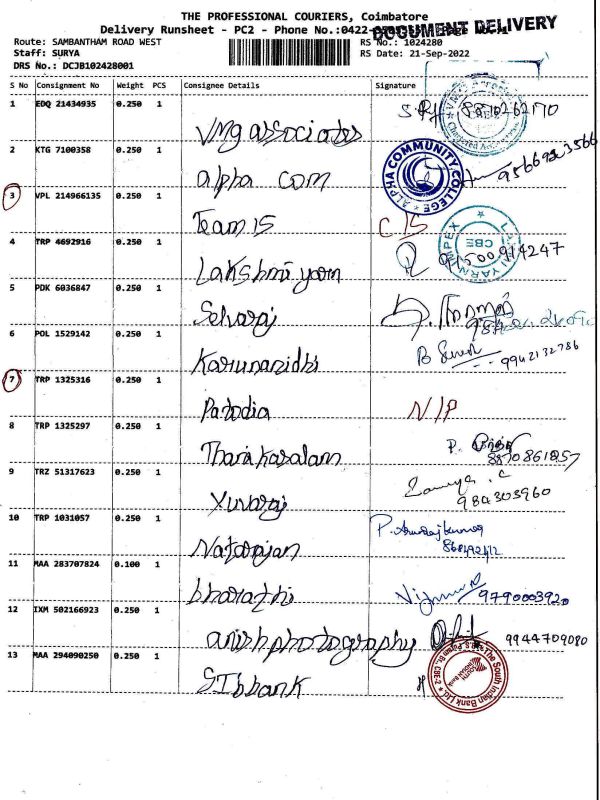 THE PROFESSIONAL COURIERS, Coimbatore
DOCUMENT DELIVERY
Delivery Runsheet - PC2 - Phone No.:0422-
Route: SAMBANTHAM ROAD WEST RS No.: 1024280
Staff: SURYA RS Date: 21-Sep-2022
DRS No.: DCJB102428001
S No Consignment No Weight PCS Consignee Details Signature
1 EDQ 21434935 0.250 1 VMg associates 8870262170
2 KTG 7100358 0.250 1 alpha com
ALPHA COMMUNITY COLLEGE
3 VPL 214966135 0.250 1 Team 15 C 15
4 TRP 4692916 0.250 1 Lakshmi yarn 91500914247
CBE
5 PDK 6036847 0.250 1 Selvaraj
6 POL 1529142 0.250 1 Karunanidhi 9942132786
7 TRP 1325316 0.250 1 Parodia N/P
8 TRP 1325297 0.250 1
9 TRZ 51317623 0.250 1 Yuvaraj 984303960
10 TRP 1031057 0.250 1 Natarajan
11 MAA 283707824 0.100 1 bharathi 9790003920
12 IXM 502166923 0.250 1 anish photography 9944709080
13 MAA 294090250 0.250 1 SIbbank
The South Indian Bank Ltd